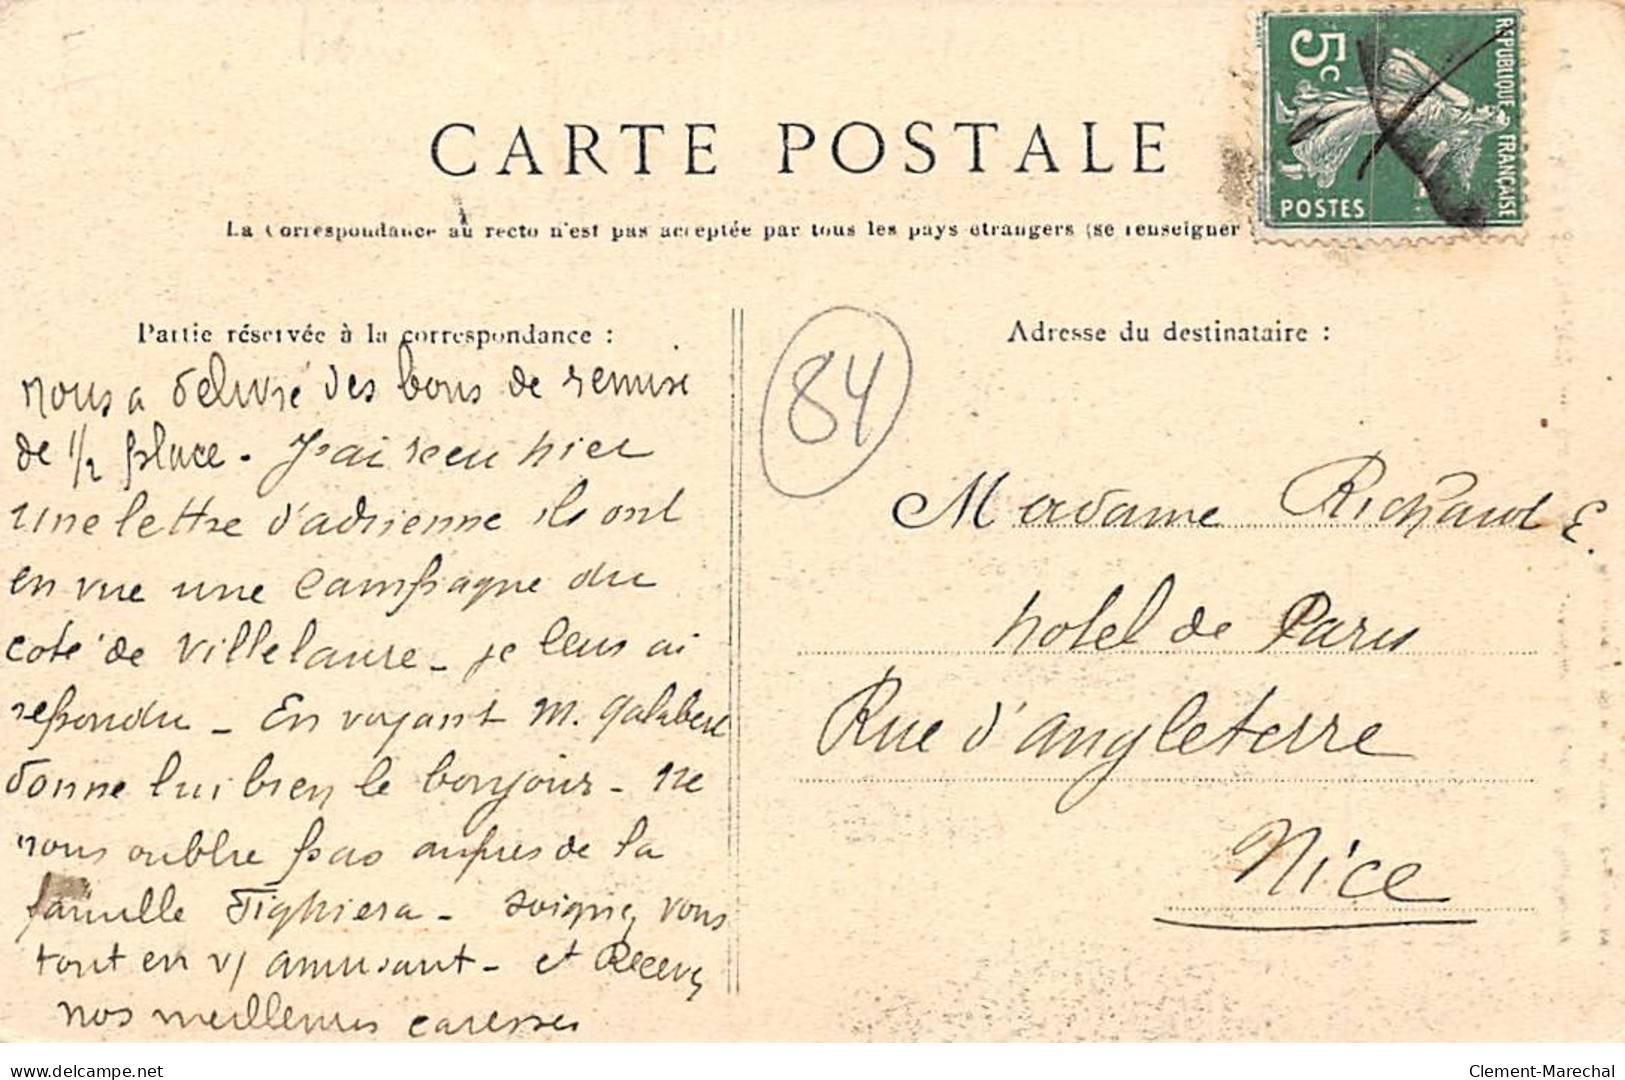 CARTE POSTALE
La Correspondance au recto n'est pas acceptée par tous les pays étrangers (se renseigner
5c
REPUBLIQUE FRANÇAISE
POSTES
Partie réservée à la correspondance :
nous a délivré des bons de remise
de 1/2 place - J'ai reçu hier
une lettre d'adrienne ils ont
en vue une campagne du
coté de Villelaure - je leus ai
repondu - En voyant M. galabert
donne lui bien le bonjour - ne
nous oublie pas aupres de la
famille Tighiera - soignez vous
tout en v/ amusant - et Recevez
nos meilleures caresses
84
Adresse du destinataire :
Madame Richaud E.
hotel de Paris
Rue d'angleterre
Nice
www.delcampe.net
Clement-Marechal